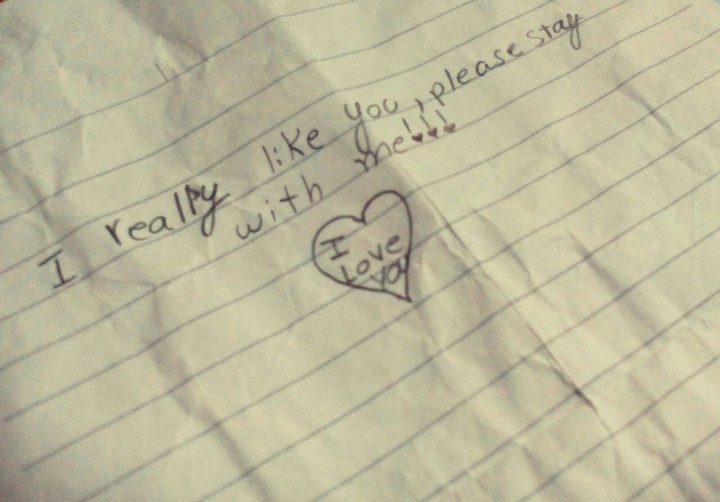 I really like you, please stay
with me!!!
I
Love
You